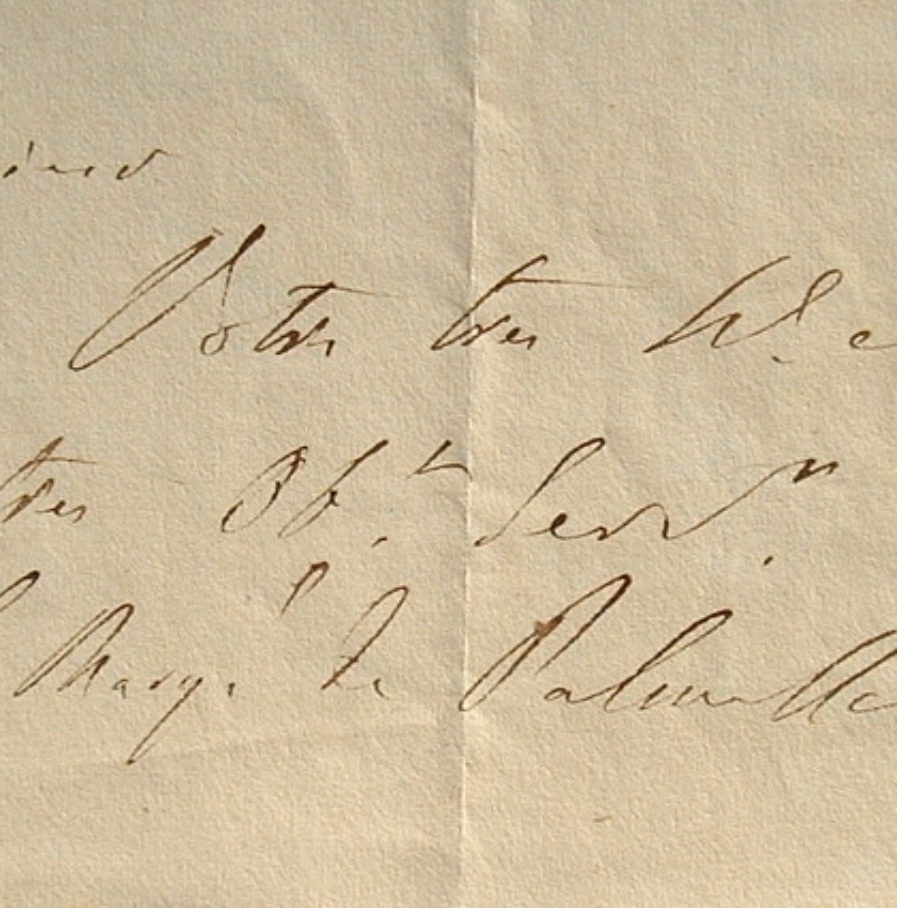 Votre tres h.e
tres Ob.t Serv.n
Marq.s de Palmella